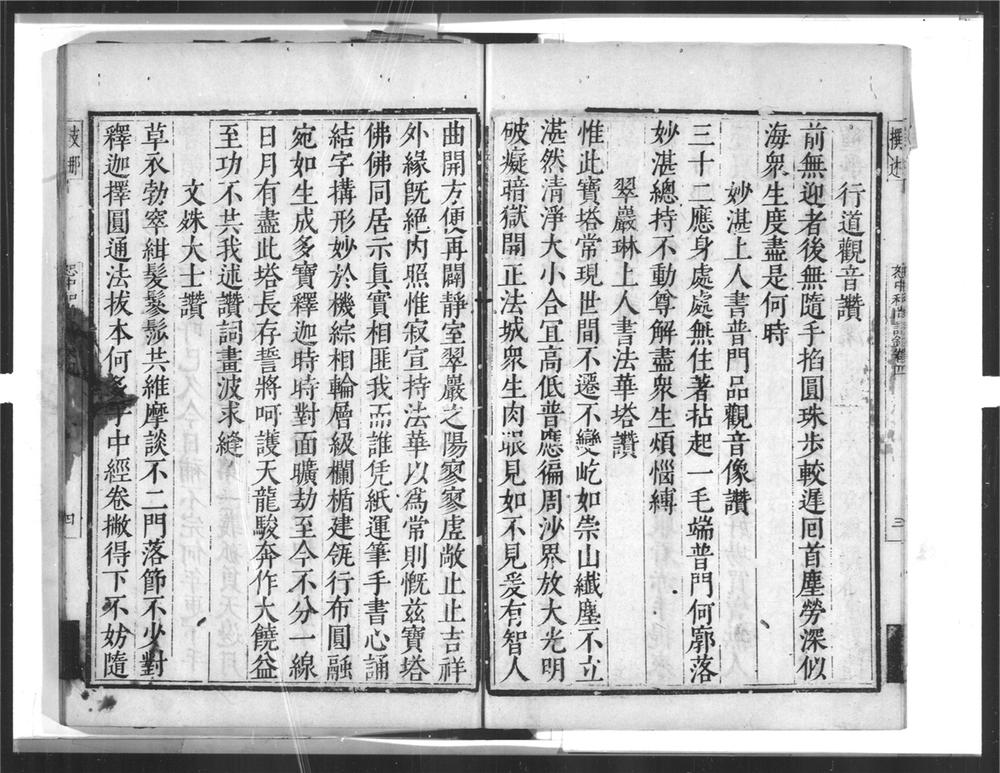 行道觀音讚
前無迎者後無隨手掐圓珠步較遲囘首塵勞深似
海衆生度盡是何時
妙湛上人書普門品觀音像讚
三十二應身處處無住著拈起一毛端普門何廓落
妙湛總持不動尊解盡衆生煩惱縛
翠巖琳上人書法華塔讚
惟此寶塔常現世間不遷不變屹如崇山纖塵不立
湛然清淨大小合宜高低普應徧周沙界放大光明
破癡暗獄開正法城衆生肉眼見如不見爰有智人
曲開方便再闢靜室翠巖之陽寥寥虛敞止止吉祥
外緣旣絕內照惟寂宣持法華以爲常則慨兹寶塔
佛佛同居示眞實相匪我而誰凭紙運筆手書心誦
結字搆形妙於機綜相輪層級欄楯建瓴行布圓融
宛如生成多寶釋迦時時對面曠劫至今不分一線
日月有盡此塔長存誓將呵護天龍駿奔作大饒益
至功不共我述讚詞畫波求縫
文殊大士讚
草衣勃窣緝髮鬖髿共維摩談不二門落節不少對
釋迦擇圓通法拔本何多手中經卷撇得下不妨隨
撰述
恕中和尚語錄卷四
三
四